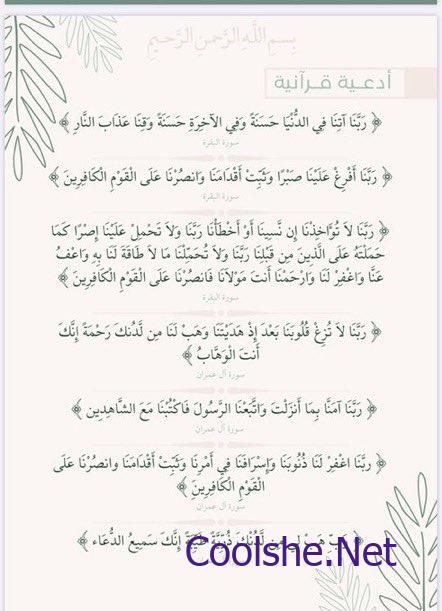 بِسمِ اللَّهِ الرَّحمنِ الرَّحيمِ
أدعـية قـرآنية
﴿ رَبَّنَا آتِنَا فِي الدُّنْيَا حَسَنَةً وَفِي الآخِرَةِ حَسَنَةً وَقِنَا عَذَابَ النَّارِ ﴾
سورة البقرة
﴿ رَبَّنَا أَفْرِغْ عَلَيْنَا صَبْرًا وَثَبِّتْ أَقْدَامَنَا وَانصُرْنَا عَلَى الْقَوْمِ الْكَافِرِينَ ﴾
سورة البقرة
﴿ رَبَّنَا لاَ تُؤَاخِذْنَا إِن نَّسِينَا أَوْ أَخْطَأْنَا رَبَّنَا وَلاَ تَحْمِلْ عَلَيْنَا إِصْرًا كَمَا
حَمَلْتَهُ عَلَى الَّذِينَ مِن قَبْلِنَا رَبَّنَا وَلاَ تُحَمِّلْنَا مَا لاَ طَاقَةَ لَنَا بِهِ وَاعْفُ
عَنَّا وَاغْفِرْ لَنَا وَارْحَمْنَا أَنتَ مَوْلاَنَا فَانصُرْنَا عَلَى الْقَوْمِ الْكَافِرِينَ ﴾
سورة البقرة
﴿ رَبَّنَا لاَ تُزِغْ قُلُوبَنَا بَعْدَ إِذْ هَدَيْتَنَا وَهَبْ لَنَا مِن لَّدُنكَ رَحْمَةً إِنَّكَ
أَنتَ الْوَهَّابُ ﴾
سورة آل عمران
﴿ رَبَّنَا آمَنَّا بِمَا أَنزَلْتَ وَاتَّبَعْنَا الرَّسُولَ فَاكْتُبْنَا مَعَ الشَّاهِدِين ﴾
سورة آل عمران
﴿ ربَّنَا اغْفِرْ لَنَا ذُنُوبَنَا وَإِسْرَافَنَا فِي أَمْرِنَا وَثَبِّتْ أَقْدَامَنَا وانصُرْنَا عَلَى
الْقَوْمِ الْكَافِرِينَ ﴾
سورة آل عمران
﴿ رَبِّ هَبْ لِي مِن لَّدُنْكَ ذُرِّيَّةً طَيِّبَةً إِنَّكَ سَمِيعُ الدُّعَاء ﴾
Coolshe.Net